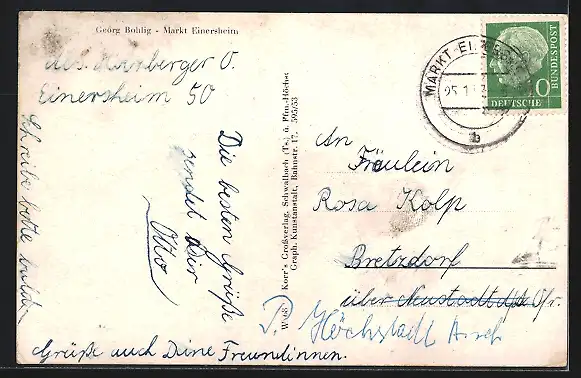 Georg Bohlig - Markt Einersheim
Abs. Nürnberger O.
Einersheim 50
Schreibe bitte bald.
Die besten Grüße
sendet Dir
Otto
Grüße auch Deine Freundinnen.
Korr's Großverlag, Schwalbach (Ts.) u. Ffm.-Höchst
Graph. Kunstanstalt, Bahnstr. 17. 595/53
MARKT-EI
25.1
b
10
DEUTSCHE
BUNDESPOST
An
Fräulein
Rosa Kolp
Bretzdorf
über Neustadt
P. Höchstadt Aisch